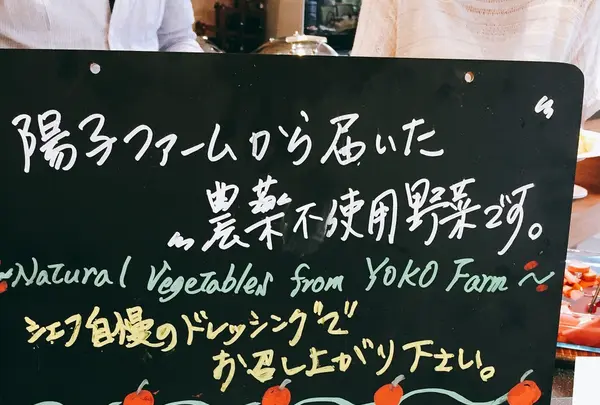 陽子ファームから届いた
農薬不使用野菜です。
~Natural Vegetables from YOKO Farm~
シェフ自慢のドレッシングで
お召し上がり下さい。